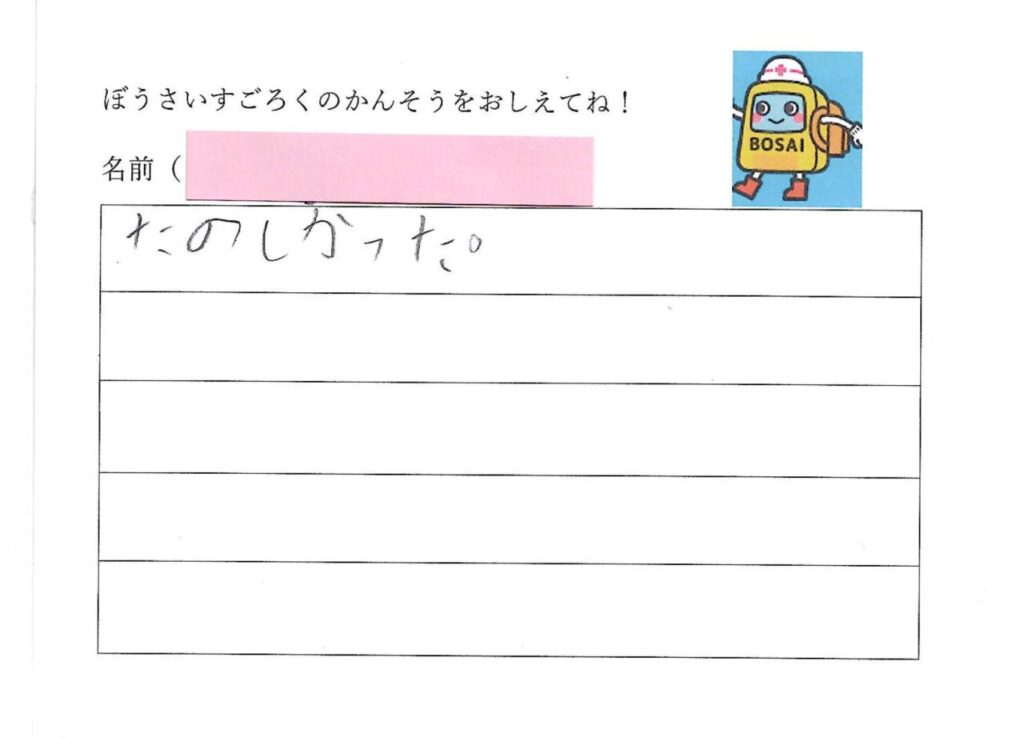 ぼうさいすごろくのかんそうをおしえてね！
BOSAI
名前（
たのしかった。